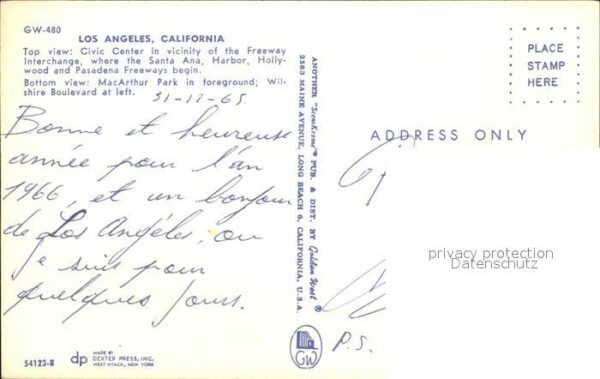 GW-480
LOS ANGELES, CALIFORNIA
Top view: Civic Center in vicinity of the Freeway
Interchange, where the Santa Ana, Harbor, Holly-
wood and Pasadena Freeways begin.
Bottom view: MacArthur Park in foreground; Wil-
shire Boulevard at left.
31-12-65
Bonne et heureuse
année pour l'an
1966, et un bonjour
de Los Angélès, ou
je suis pour
quelques jours.
54123-B
dp
MADE BY
DEXTER PRESS, INC.
WEST NYACK, NEW YORK
ANOTHER "Scenikrome"® PUB. & DIST. BY Golden West ®
2583 MAINE AVENUE, LONG BEACH 6, CALIFORNIA, U.S.A.
GW
PLACE
STAMP
HERE
ADDRESS ONLY
privacy protection
Datenschutz
P.S.